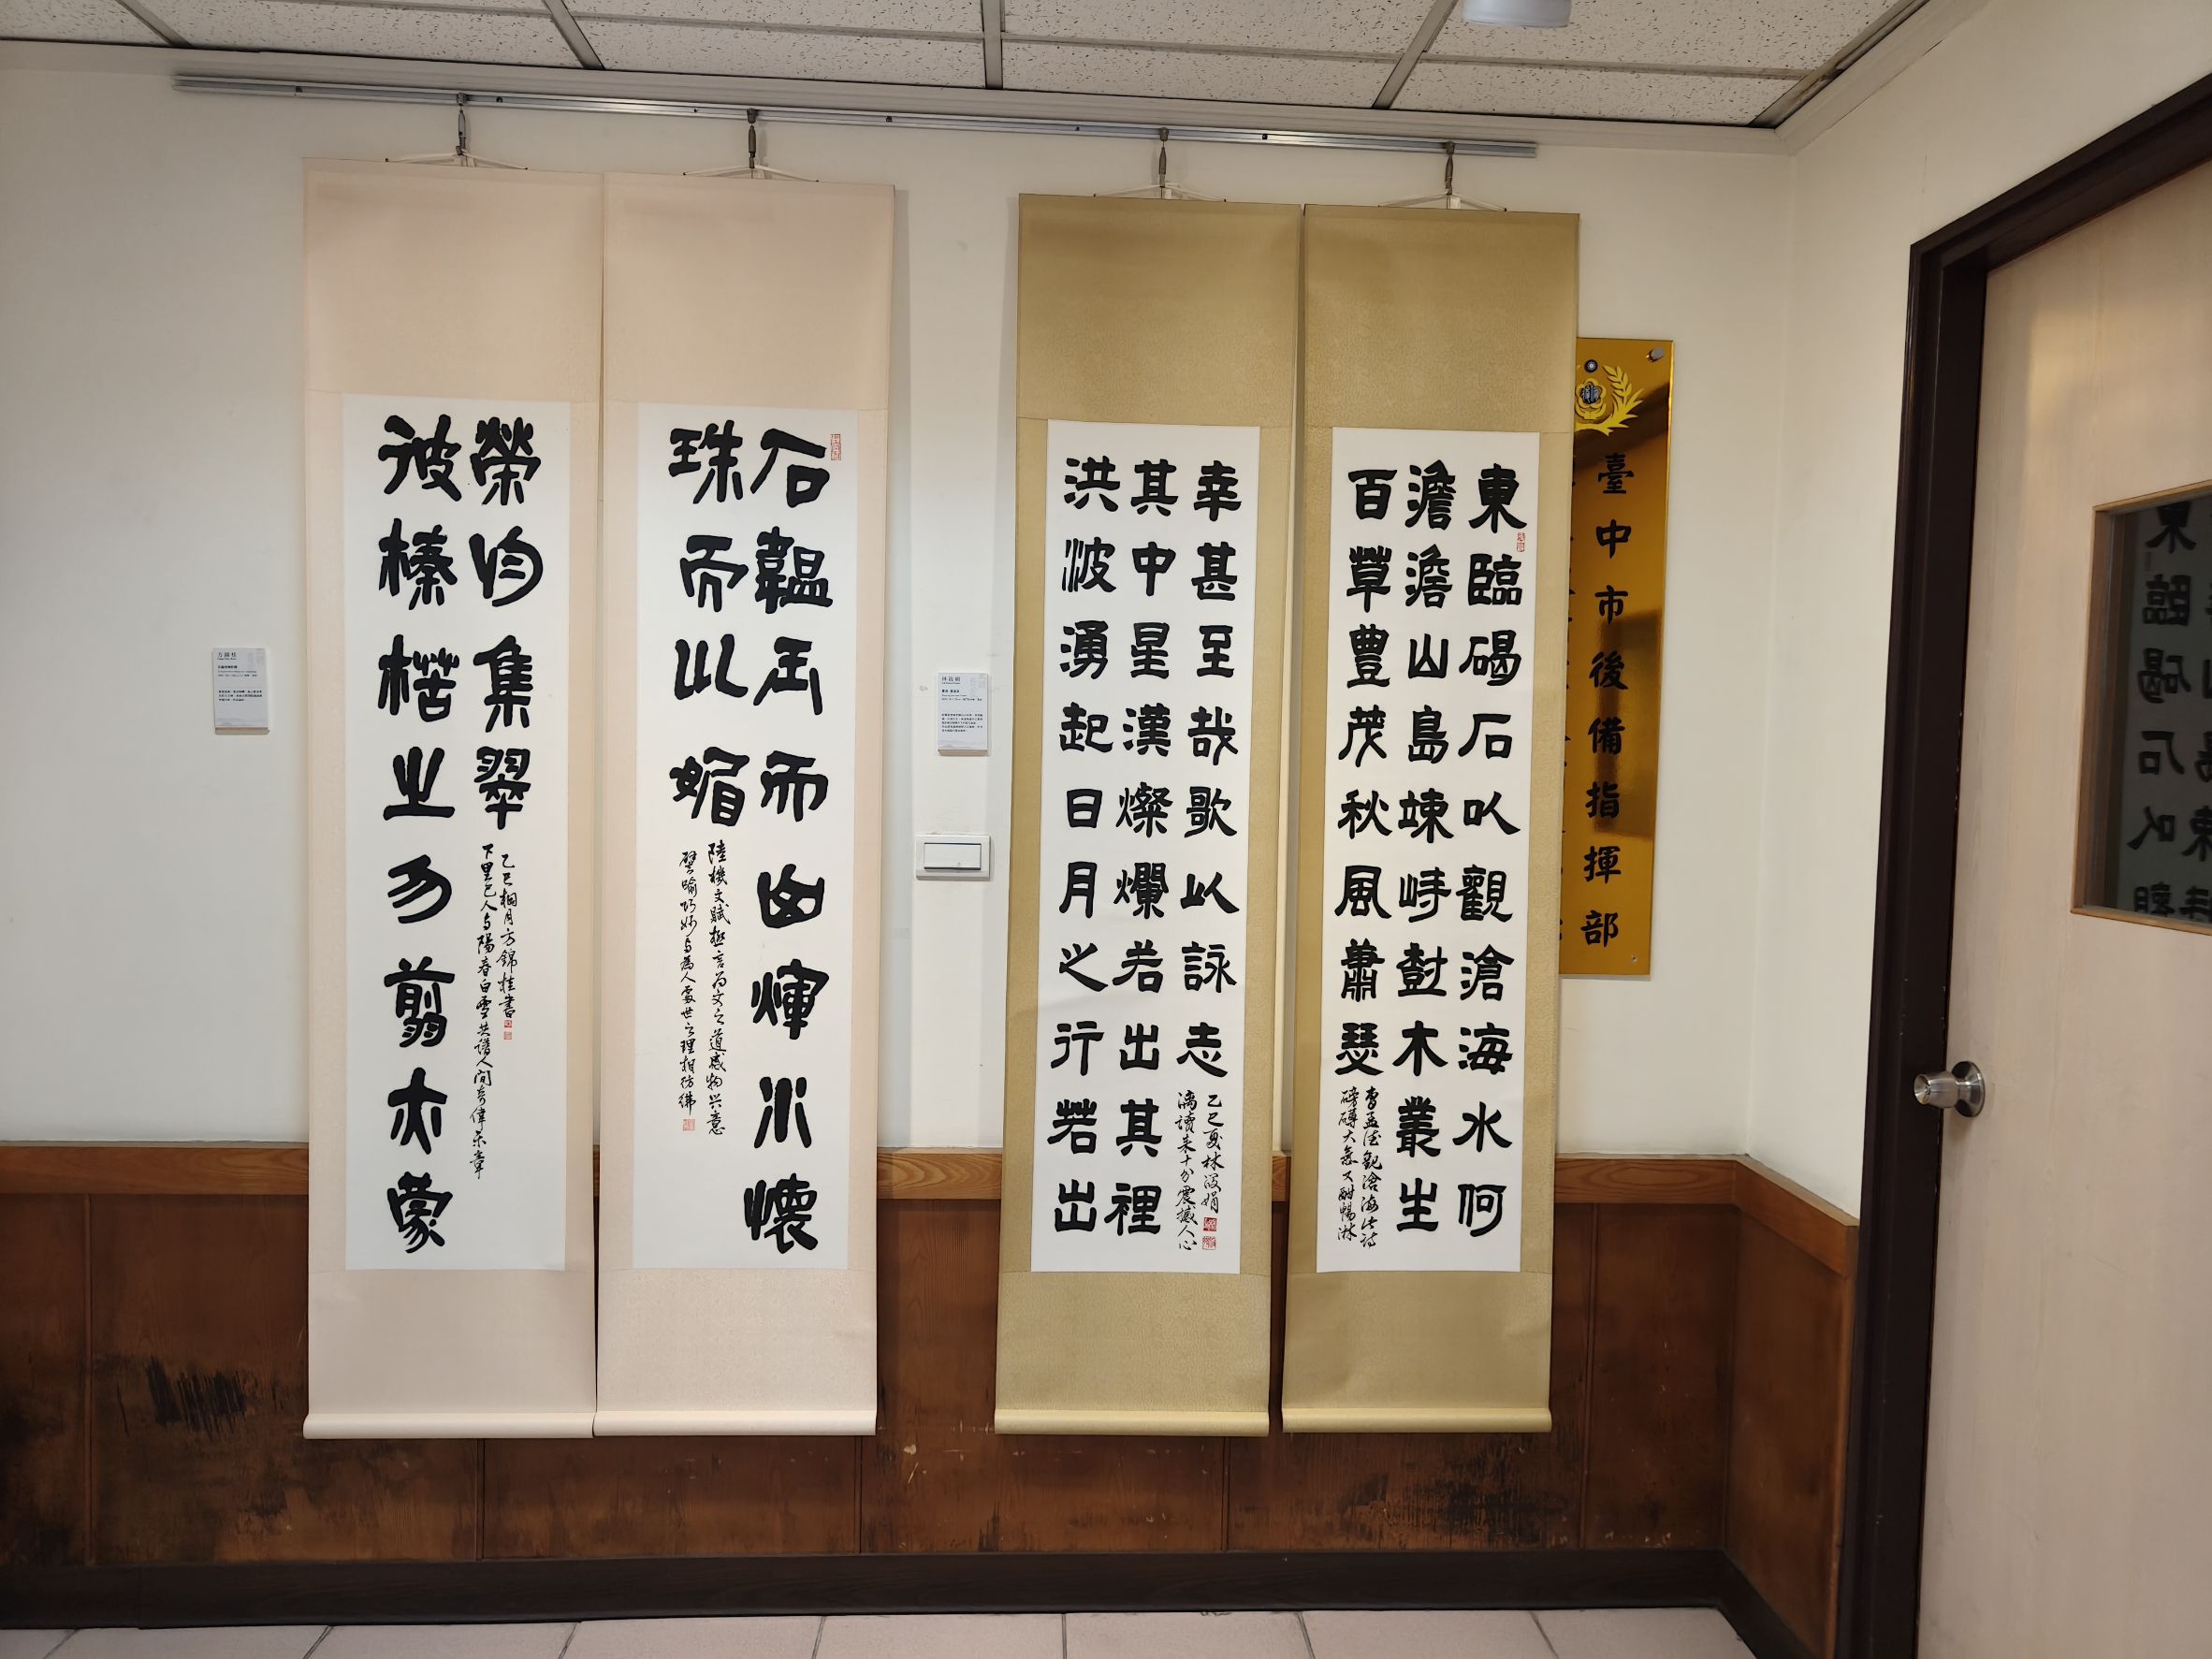 臺中市後備指揮部
東臨碣石以觀滄海水何
澹澹山島竦峙樹木叢生
百草豐茂秋風蕭瑟
曹孟德觀滄海此詩
磅礡大氣又酣暢淋
洪波湧起日月之行若出
其中星漢燦爛若出其裡
幸甚至哉歌以詠志
漓讀來十分震撼人心
乙巳夏林娟
石韞玉而山暉水懷
珠而川媚
陸機文賦極言為文之道感物興意
譬喻巧妙与為人處世之理相彷彿
彼榛楛之勿翦亦蒙
榮於集翠
下里巴人与陽春白雪共譜人間奇偉樂章
乙巳桐月方錦桂書
方錦桂